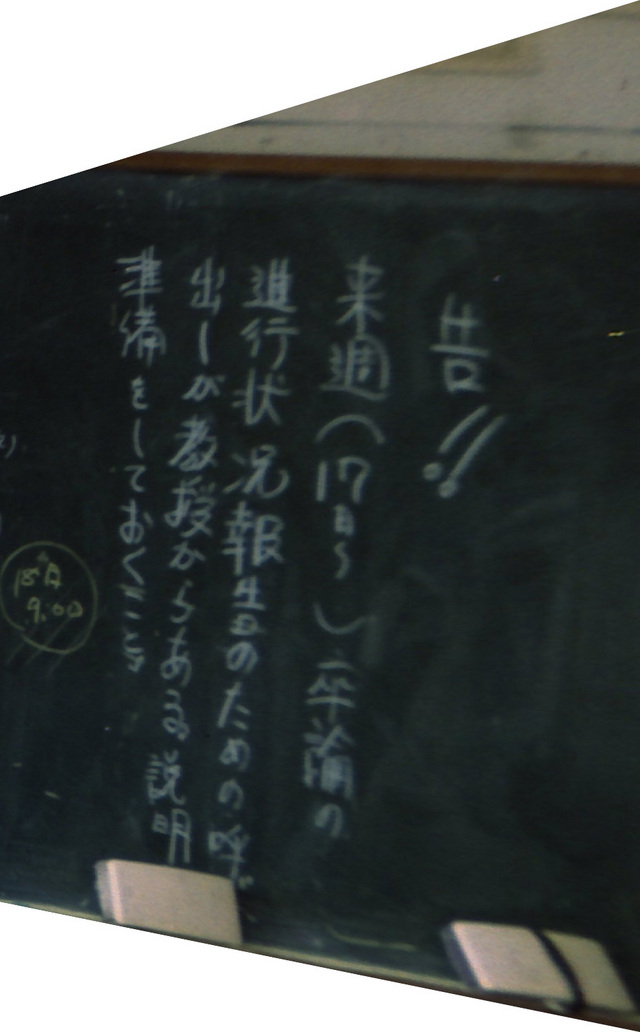 告!!
来週(17日~)卒論の
進行状況報告のための呼び
出しが教授からある。説明
準備をしておくこと。
18日
9:00